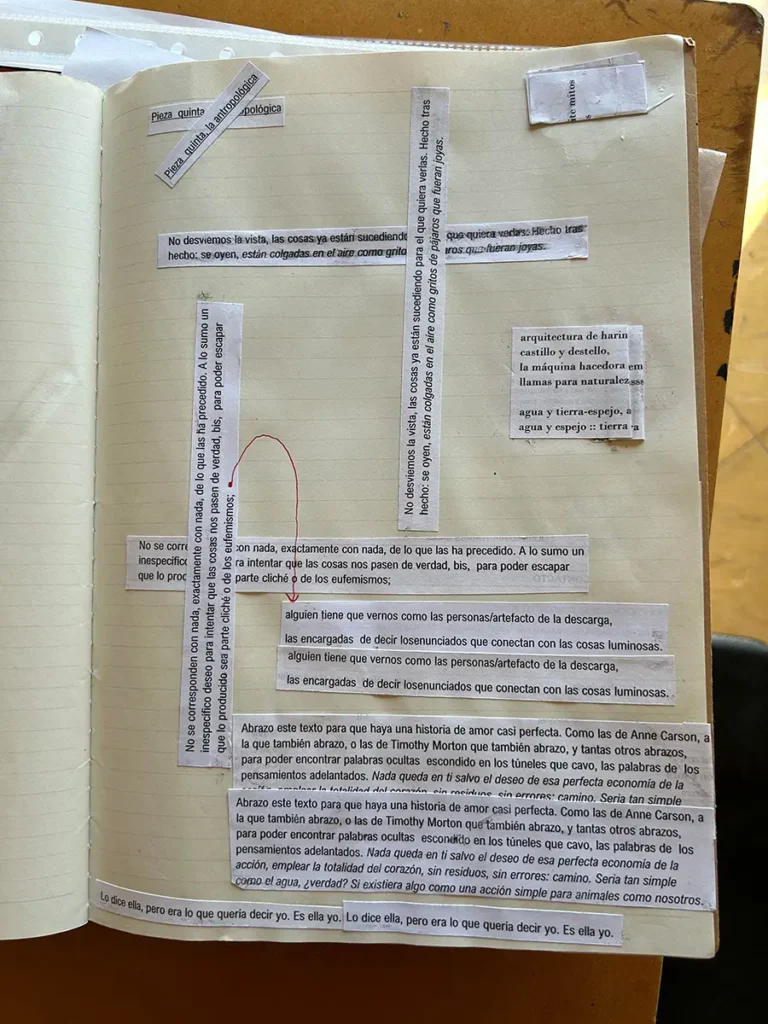 Pieza quinta pológica
Pieza quinta, la antropológica
te mitos
s
No desviemos la vista, las cosas ya están sucediendo que quiera verlas. Hecho tras
hecho: se oyen, están colgadas en el aire como grito ros que fueran joyas.
No desviemos la vista, las cosas ya están sucediendo para el que quiera verlas. Hecho tras
hecho: se oyen, están colgadas en el aire como gritos de pájaros que fueran joyas.
arquitectura de harin
castillo y destello,
la máquina hacedora em
llamas para naturalez
agua y tierra-espejo, a
agua y espejo :: tierra a
No se corresponden con nada, exactamente con nada, de lo que las ha precedido. A lo sumo un
inespecífico deseo para intentar que las cosas nos pasen de verdad, bis, para poder escapar
que lo producido sea parte cliché o de los eufemismos;
No se corre con nada, exactamente con nada, de lo que las ha precedido. A lo sumo un
inespecífico ra intentar que las cosas nos pasen de verdad, bis, para poder escapar
que lo proc parte cliché o de los eufemismos;
alguien tiene que vernos como las personas/artefacto de la descarga,
las encargadas de decir losenunciados que conectan con las cosas luminosas.
alguien tiene que vernos como las personas/artefacto de la descarga,
las encargadas de decir losenunciados que conectan con las cosas luminosas.
Abrazo este texto para que haya una historia de amor casi perfecta. Como las de Anne Carson, a
la que también abrazo, o las de Timothy Morton que también abrazo, y tantas otros abrazos,
para poder encontrar palabras ocultas escondido en los túneles que cavo, las palabras de los
pensamientos adelantados. Nada queda en ti salvo el deseo de esa perfecta economía de la
acción, emplear la totalidad del corazón, sin residuos, sin errores: camino. Seria tan simple
Abrazo este texto para que haya una historia de amor casi perfecta. Como las de Anne Carson, a
la que también abrazo, o las de Timothy Morton que también abrazo, y tantas otros abrazos,
para poder encontrar palabras ocultas escondido en los túneles que cavo, las palabras de los
pensamientos adelantados. Nada queda en ti salvo el deseo de esa perfecta economía de la
acción, emplear la totalidad del corazón, sin residuos, sin errores: camino. Seria tan simple
como el agua, ¿verdad? Si existiera algo como una acción simple para animales como nosotros.
Lo dice ella, pero era lo que quería decir yo. Es ella yo.
Lo dice ella, pero era lo que quería decir yo. Es ella yo.